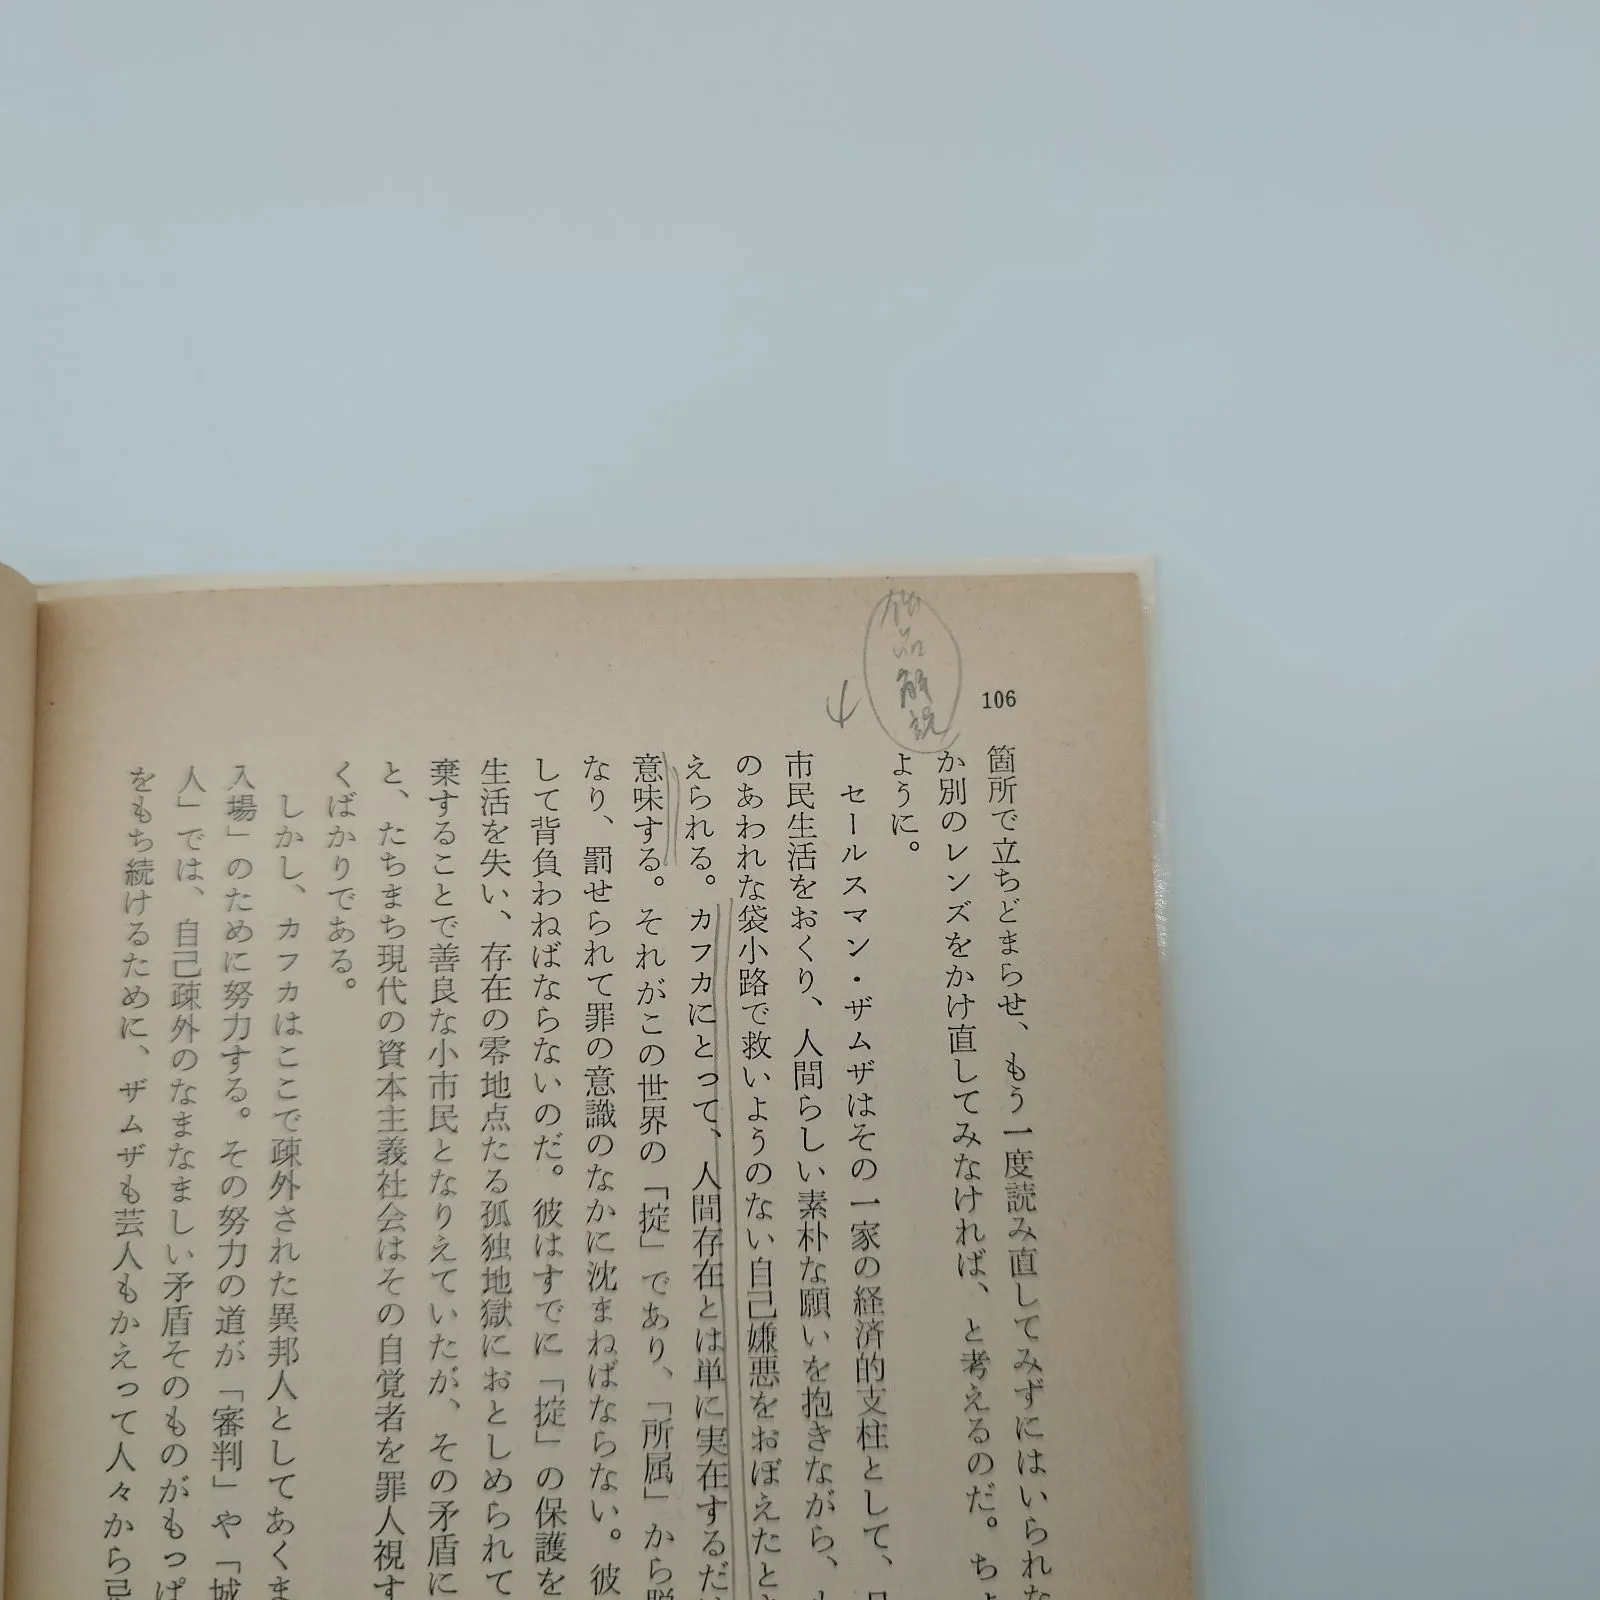 作品解説
106
箇所で立ちどまらせ、もう一度読み直してみずにはいられな
か別のレンズをかけ直してみなければ、と考えるのだ。ちょ
ように。
セールスマン・ザムザはその一家の経済的支柱として、
市民生活をおくり、人間らしい素朴な願いを抱きながら、
のあわれな袋小路で救いようのない自己嫌悪をおぼえたと
えられる。カフカにとって、人間存在とは単に実在するだ
意味する。それがこの世界の「掟」であり、「所属」から脱
なり、罰せられて罪の意識のなかに沈まねばならない。彼
して背負わねばならないのだ。彼はすでに「掟」の保護を
生活を失い、存在の零地点たる孤独地獄におとしめられて
棄することで善良な小市民となりえていたが、その矛盾に
と、たちまち現代の資本主義社会はその自覚者を罪人視す
くばかりである。
しかし、カフカはここで疎外された異邦人としてあくま
入場」のために努力する。その努力の道が「審判」や「城
人」では、自己疎外のなまなましい矛盾そのものがもっぱ
をもち続けるために、ザムザも芸人もかえって人々から忌